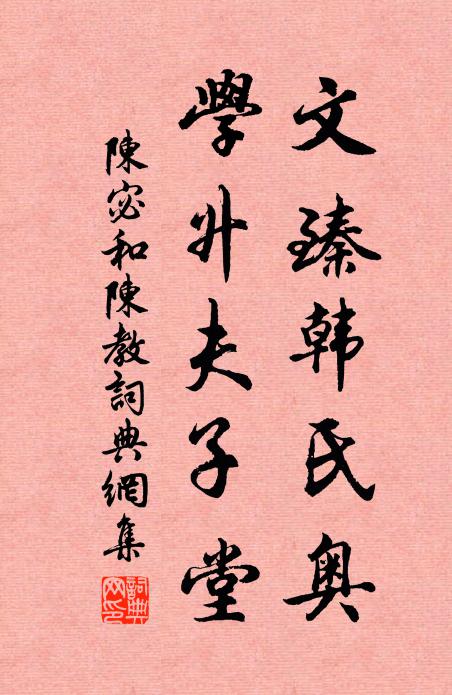 文臻韩氏奥
學升夫子堂
陳宓和陳教詞典網集
詞典網印